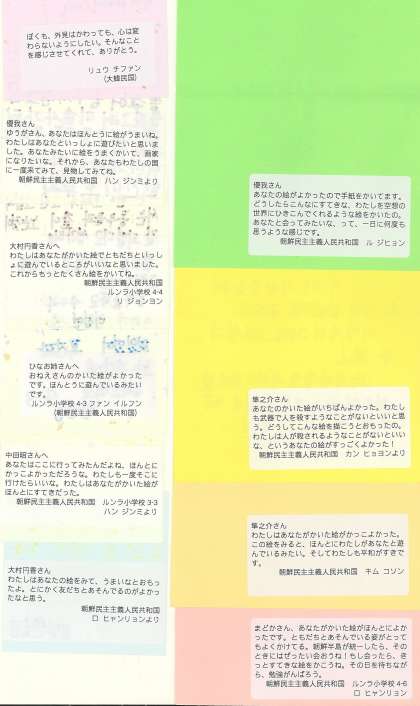 ぼくも、外見はかわっても、心は変
わらないようにしたい。そんなこと
を感じさせてくれて、ありがとう。
リュウ チファン
(大韓民国)
優我さん
ゆうがさん、あなたはほんとうに絵がうまいね。
わたしはあなたといっしょに遊びたいと思いま
した。あなたみたいに絵をうまくかいて、画家
になりたいな。それから、あなたもわたしの国
に一度来てみて、見物してみてね。
朝鮮民主主義人民共和国 ハン ジンミより
大村円香さんへ
わたしはあなたがかいた絵でともだちといっし
ょに遊んでいるところがいいなと思いました。
これからもっとたくさん絵をかいてね。
朝鮮民主主義人民共和国
ルンラ小学校 4-4
リ ジョンヨン
ひなお姉さんへ
おねえさんのかいた絵がよかった
です。ほんとうに遊んでいるみたい
です。
ルンラ小学校 4-3 ファン イルフン
(朝鮮民主主義人民共和国)
中田昭さんへ
あなたはここに行ってみたんだよね。ほんとに
かっこよかっただろうな。わたしも一度そこに
行けたらいいな。わたしはあなたがかいた絵が
ほんとにすてきだった。
朝鮮民主主義人民共和国 ルンラ小学校 3-3
ハン ジンミより
大村円香さん
わたしはあなたの絵をみて、うまいなとおもっ
たよ。とにかく友だちとあそんでるのがよかっ
たなと思う。
朝鮮民主主義人民共和国
ロ ヒャンリョンより
優我さん
あなたの絵がよかったので手紙をかいてます。
どうしたらこんなにすてきな、わたしを空想の
世界にひきこんでくれるような絵をかいたの。
あなたと会ってみたいな、って、一日に何度も
思うような感じです。
朝鮮民主主義人民共和国 ル ジヒョン
隼之介さん
あなたのかいた絵がいちばんよかった。わたし
も武器で人を殺すようなことがないといいと思
う。どうしてこんな絵を描こうとおもったの。
わたしは人が殺されるようなことがないといい
な、というあなたの絵がすっごくよかった!
朝鮮民主主義人民共和国 カン ヒョヨンより
隼之介さん
わたしはあなたがかいた絵がかっこよかった。
この絵をみると、ほんとにわたしがあなたと遊
んでいるみたい。そしてわたしも平和がすきで
す。
朝鮮民主主義人民共和国 キム コソン
まどかさん、あなたがかいた絵がほんとによか
ったです。ともだちとあそんでいる姿がとって
もよくかけてる。朝鮮半島が統一したら、その
ときにはぜったい会おうね!もし会ったら、き
っとすてきな絵をかこうね。その日を待ちなが
ら、勉強がんばろう。
朝鮮民主主義人民共和国 ルンラ小学校 4-6
ロ ヒャンリョン